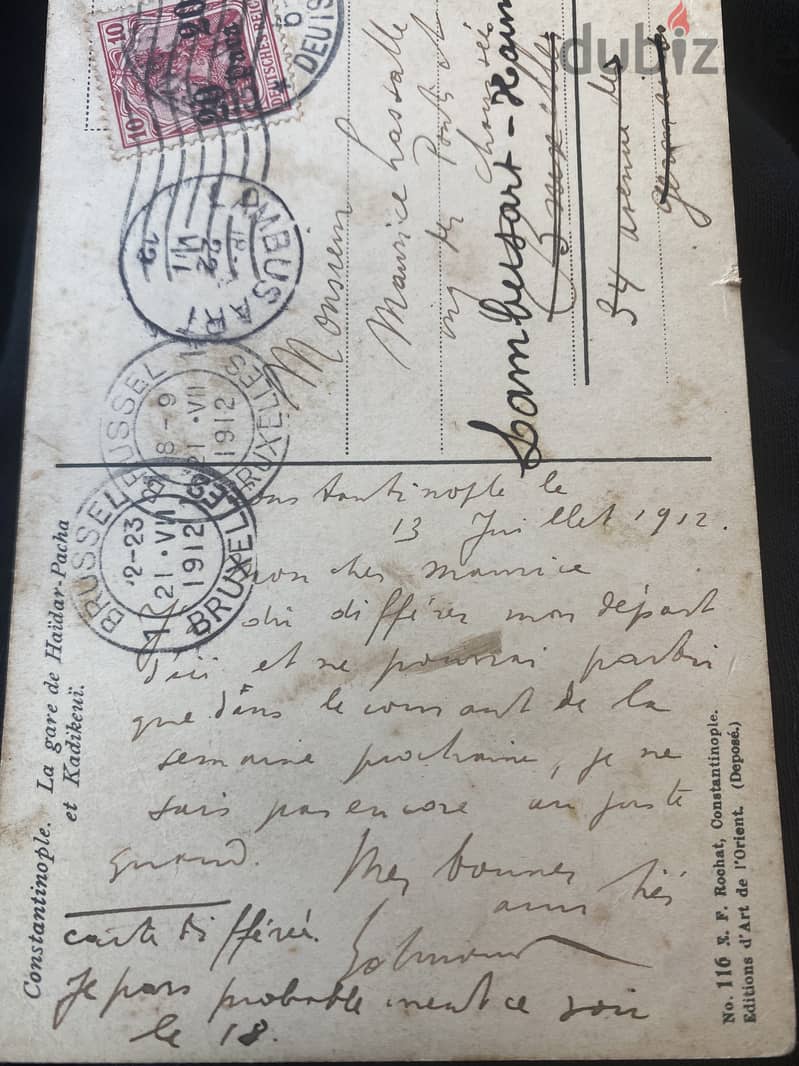 dubizzle
10
10
20
20
DEUTSCHES REICH
DEUTS
LAMBUSART
22
VII
12
BRUSSEL
8-9
21·VII
1912
BRUXELLES
BRUSSEL
21·VII
1912
BRUXELLES
Monsieur
Maurice Lassalle
ing des Ponts et
Chaussées
Lambusart-Hain
Bruxelles
34 avenue des
Germains
Constantinople le
13 Juillet 1912.
mon cher Maurice
J'ai dû différer mon départ
d'ici et ne pourrai partir
que dans le courant de la
semaine prochaine, je ne
sais pas encore au juste
quand. Mes bonnes
amitiés
Edmond
carte différée.
Je pars probablement ce soir
le 18.
Constantinople. La gare de Haïdar-Pacha
et Kadikeuï.
No. 116 E. F. Rochat, Constantinople.
Editions d'Art de l'Orient. (Deposé.)